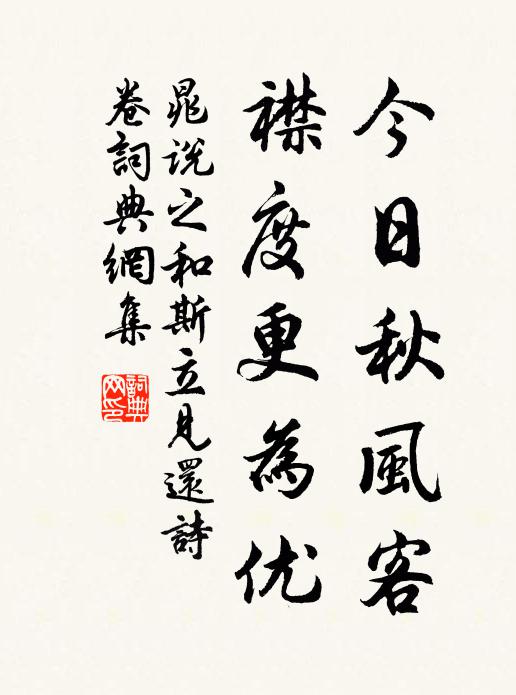 今日秋風客
襟度更為优
晁说之和斯立見還詩
卷詞典網集
詞典網印